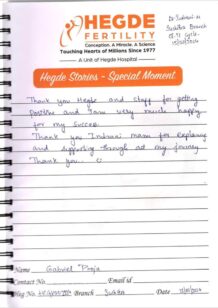 Dr Indrani m
Suchitra Branch
HEGDE
FERTILITY
Conception. A Miracle. A Science
Touching Hearts of Millions Since 1977
A Unit of Hegde Hospital
Hegde Stories - Special Moment
Thank you Hegde and staff for getting
Positive and Iam very much happy
for my Success.
Thank you Indrani mam for explaning
and supporting through all my journey
Thank you..
Name Gabriel Pooja
Contact No. Email id
Reg No. Branch Suchitra Date